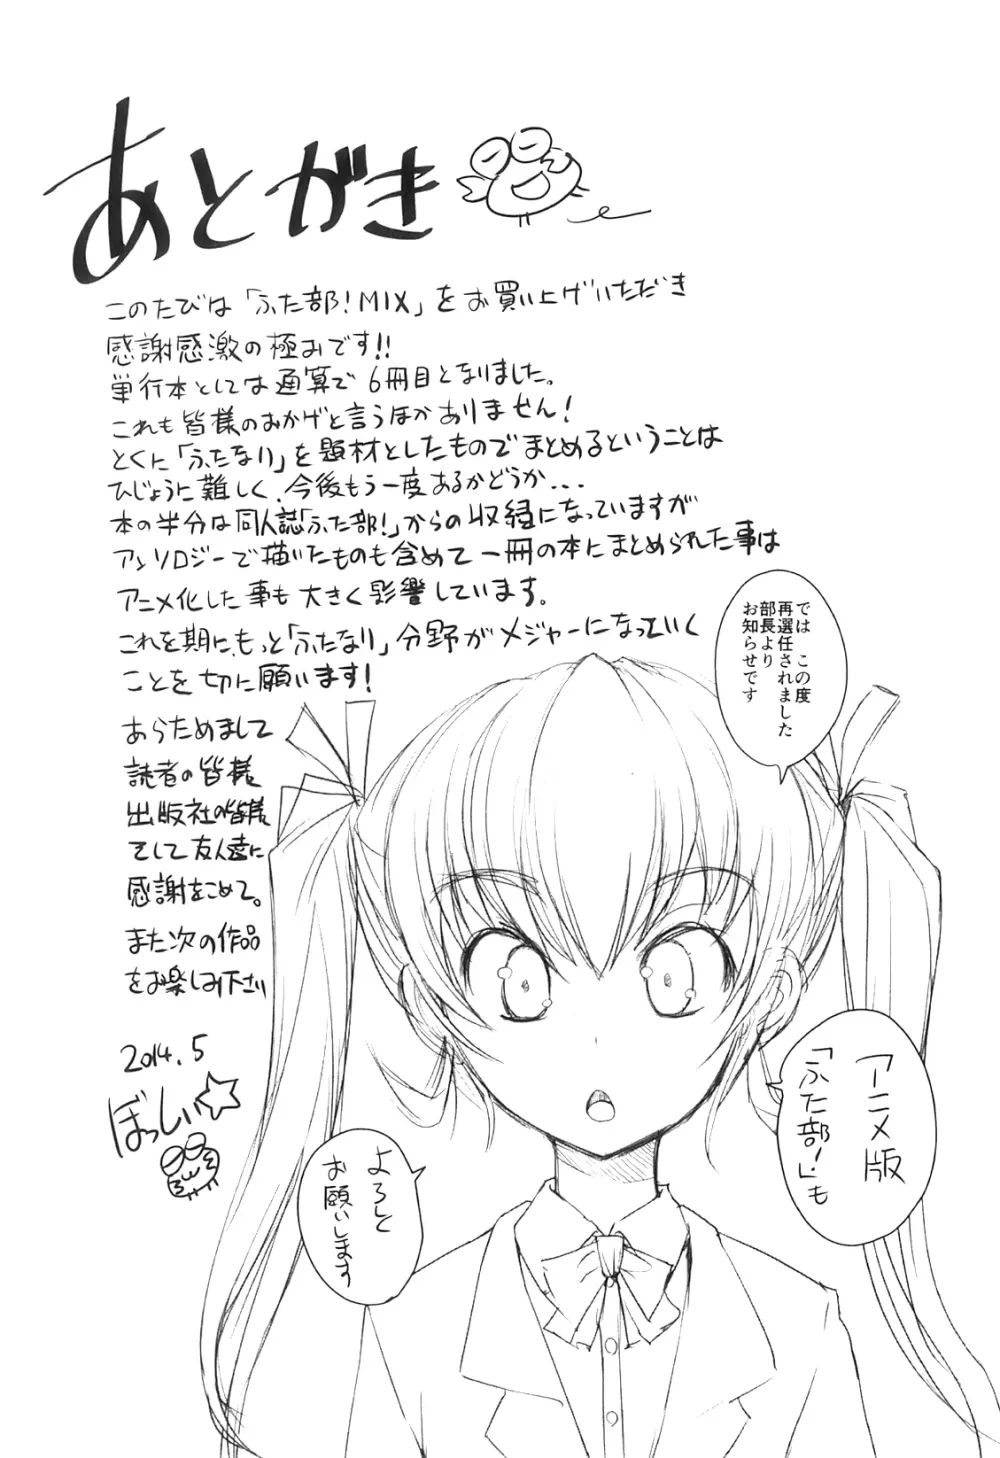 あとがき
このたびは「ふた部！MIX」をお買い上げいただき
感謝感激の極みです!!
単行本としては通算で6冊目となりました。
これも皆様のおかげと言うほかありません！
とくに「ふたなり」を題材としたものでまとめるということは
ひじょうに難しく、今後もう一度あるかどうか...
本の半分は同人誌「ふた部！」からの収録になっていますが
アンソロジーで描いたものも含めて一冊の本にまとめられた事は
アニメ化した事も大きく影響しています。
これを期に、もっと「ふたなり」分野がメジャーになっていく
ことを切に願います！
あらためまして
読者の皆様
出版社の皆様
そして友人達に
感謝をこめて。
また次の作品
をお楽しみ下さい
2014.5
ぼっしぃ☆
では この度
再選任されました
部長より
お知らせです
アニメ版
「ふた部！」も
よろしく
お願いします